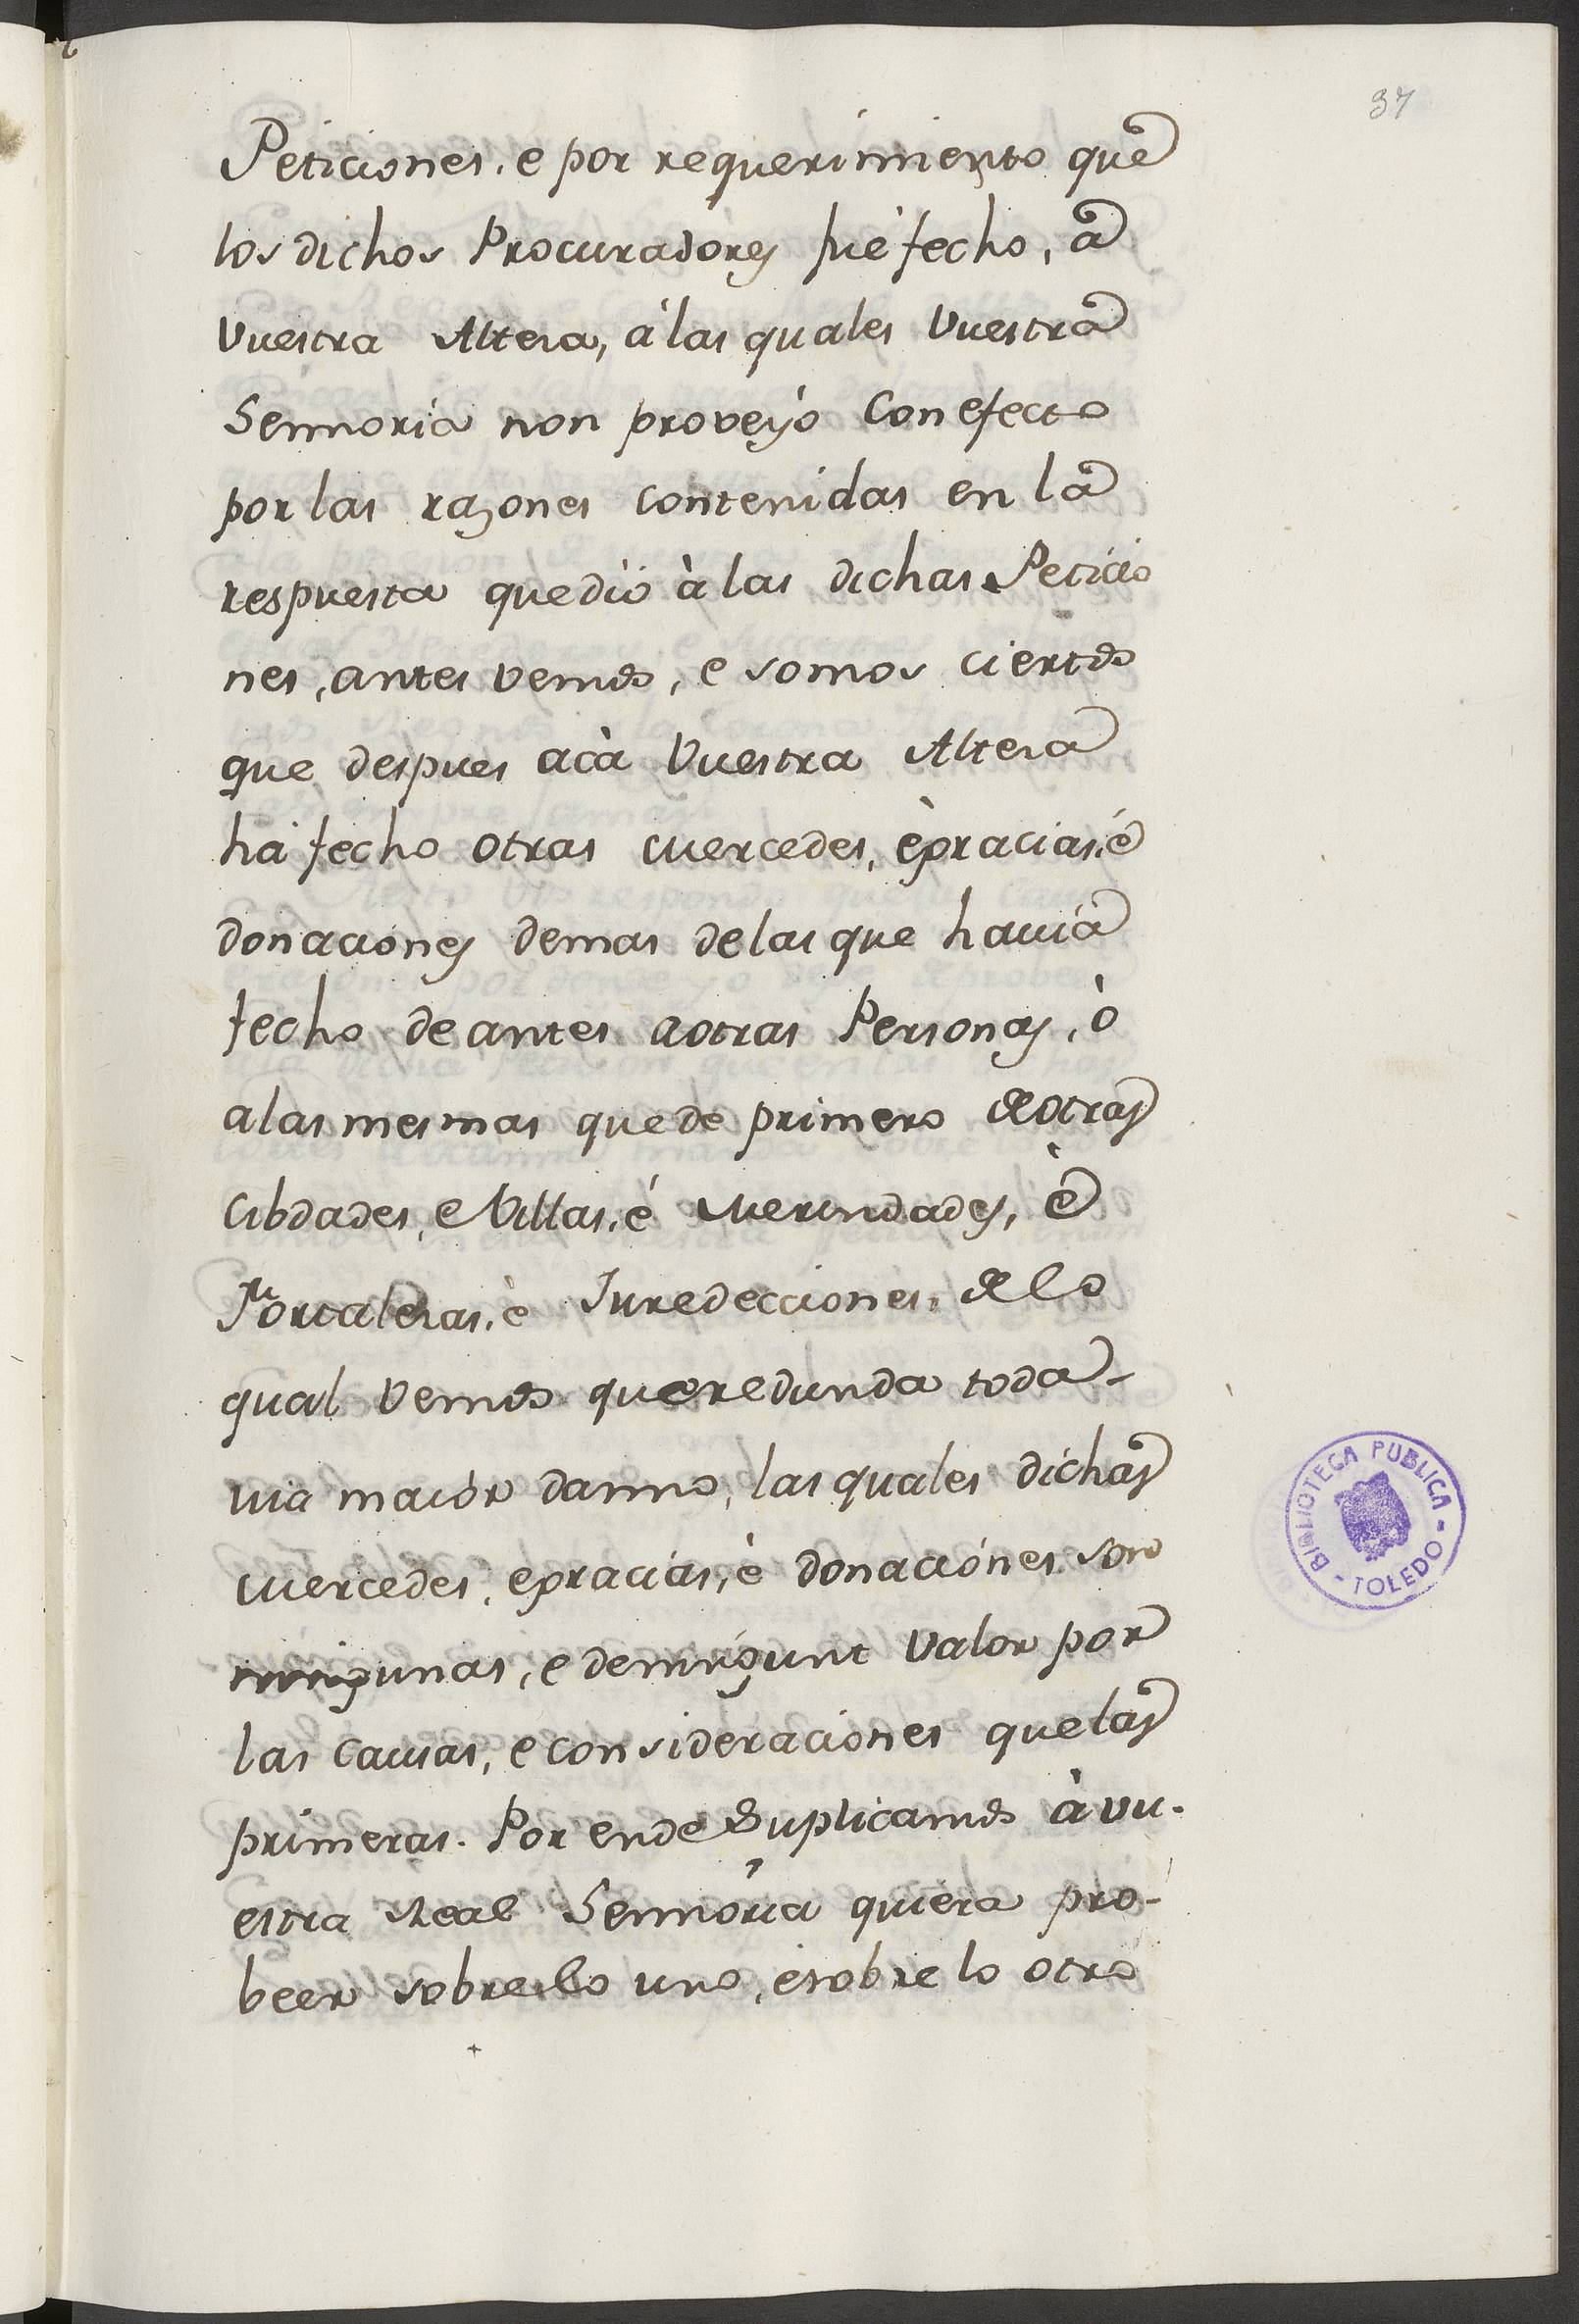 37
Peticiones, e por requerimiento que
los dichos Procuradores fué fecho, a
Vuestra Alteza, á las quales Vuestra
Sennoria non proveyó con efecto
por las razones contenidas en la
respuesta que dió à las dichas Peticio
nes, antes vemos, e somos ciertos
que despues acà Vuestra Alteza
há fecho otras mercedes, è gracias, é
donaciones demas de las que havia
fecho de antes a otras Personas, ò
a las mesmas que de primero de otras
Cibdades, e Villas, é Merindades, è
Fortalezas, è Juredecciones, de lo
qual vemos que redunda toda-
via maiór danno, las quales dichas
mercedes, e gracias, è donaciónes son
ningunas, e de ningunt valor por
las causas, e consideraciones que las
primeras. Por ende Suplicamos à vu-
estra Real Sennoria quiera pro-
beer sobre lo uno, é sobre lo otro
BIBLIOTECA PUBLICA
- TOLEDO -